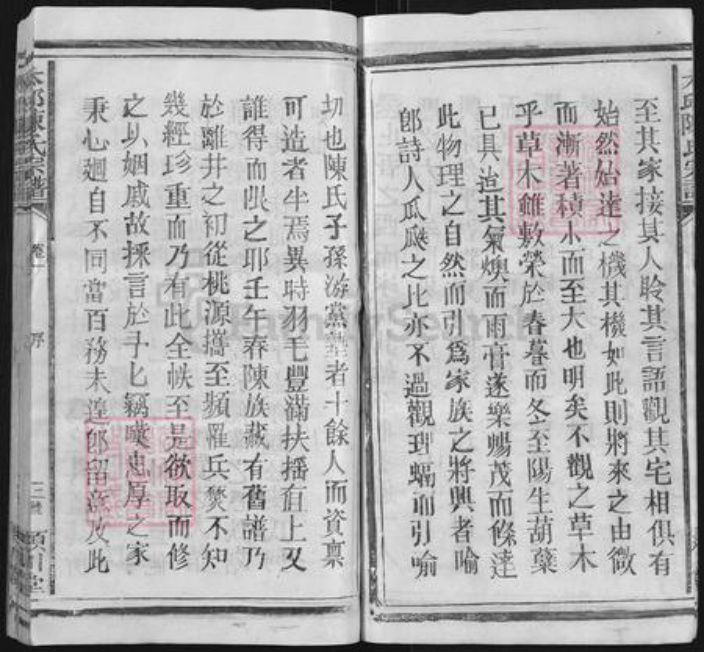 至其家接其人聆其言語觀其宅相俱有
始然始達之機其機如此則將來之由微
而漸著積小而至大也明矣不觀之草木
乎草木雖敷榮於春暮而冬至陽生葫蘆
已具迨其氣燠而雨膏遂樂暢茂而條達
此物理之自然而引爲家族之將興者喻
郎詩人瓜瓞之比亦不過觀理蝠而引喻
切也陳氏子孫游黨塾者十餘人而資禀
可造者半焉異時羽毛豐滿扶搖直上又
誰得而限之耶壬午春陳族藏有舊譜乃
於離井之初從桃源攜至頻罹兵燹不知
幾經珍重而乃有此全帙至是欲取而修
之以姻戚故採言於予匕竊嘆忠厚之家
秉心廻自不同當百務未遑郎留意及此
太邱陳氏宗譜
卷一
序
潁川堂
太邱陳氏宗譜